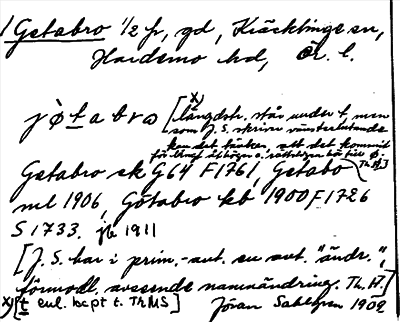 Getabro 1/2 fr, gd, Kräcklinge sn,
Hardemo hd, Ör. l.
jø̀tabro [x) längdstr. står under t, men
som J. S. skriver vänsterlutande
kan det tänkas, att det kommit
för långt åt höger o. rätteligen hör till ø. Th. H.]
Getabro sk G64 F1761, Getabo
ml 1906, Götabro kb 1900 F1726
S1733. jb 1911
[J. S. har i prim.-aut. su aut. "ändr.",
förmodl. avseende namnändring. Th. H.]
x) [t enl. kept t. Th MS] Jöran Sahlgren 1909